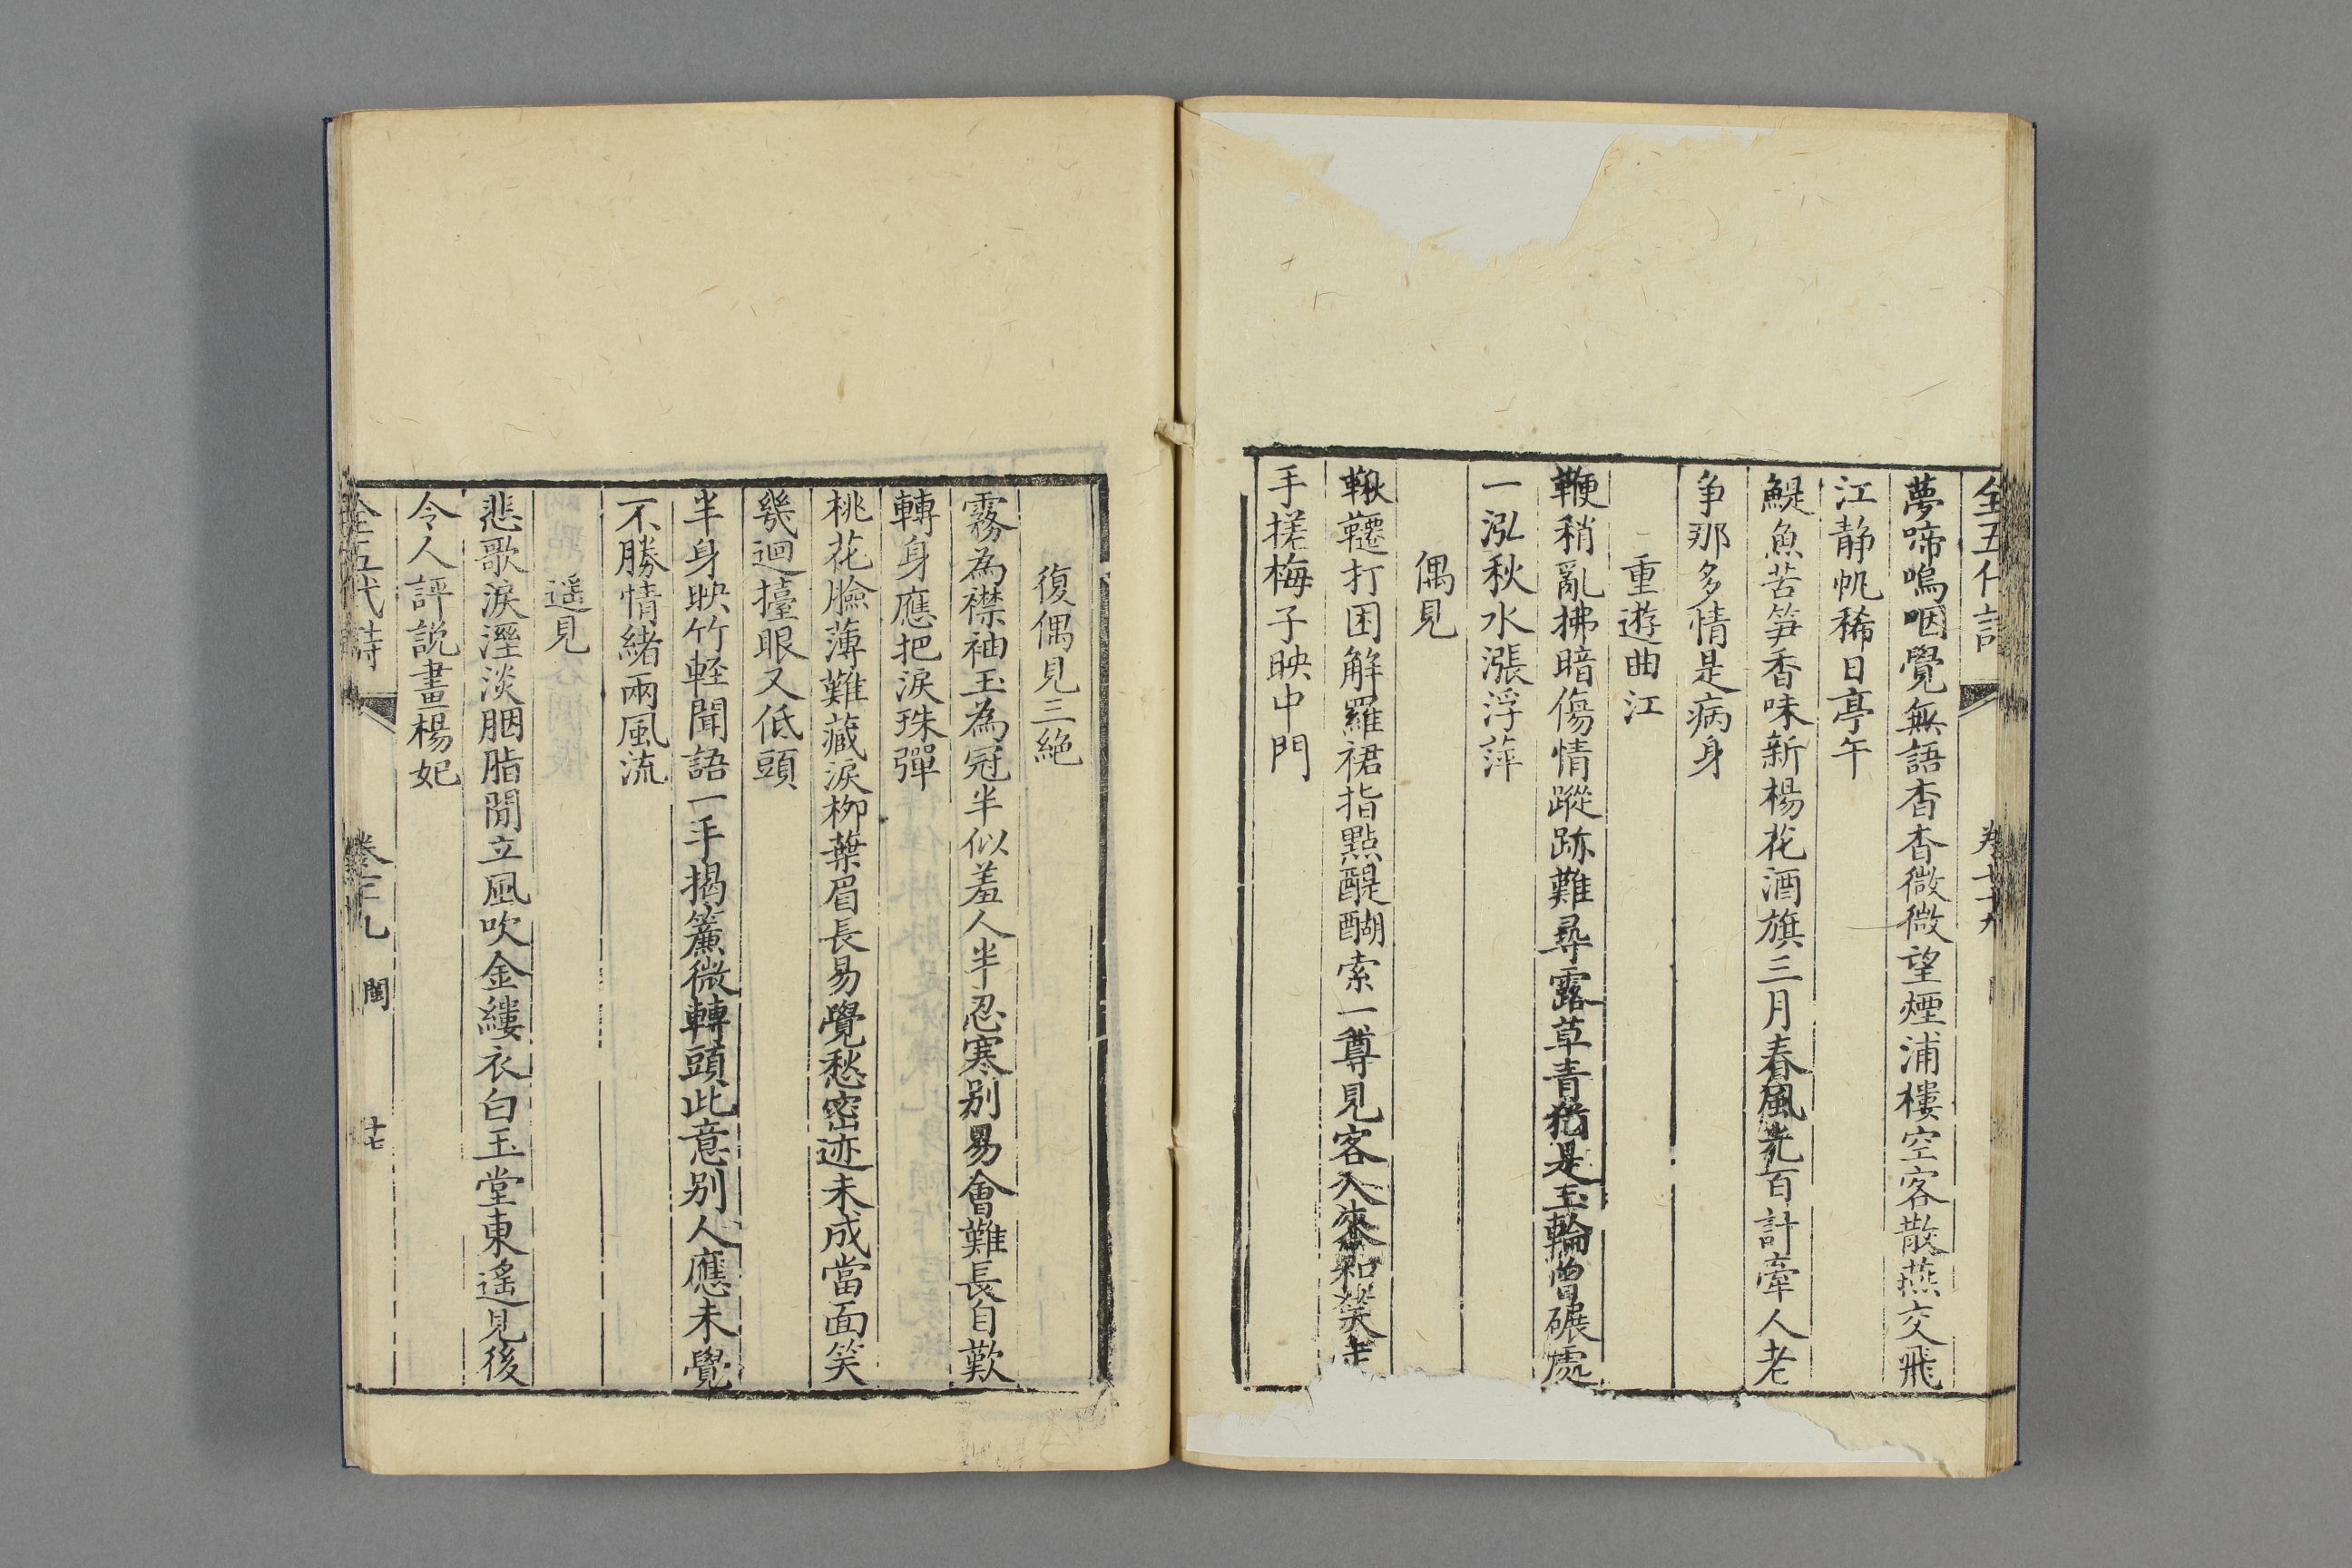 全五代詩
卷七十九
夢啼嗚咽覺無語杳杳微微望煙浦樓空客散燕交飛
江静帆稀日亭午
鯷魚苦笋香味新楊花酒旗三月春風光百計牽人老
争那多情是病身
重遊曲江
鞭稍亂拂暗傷情蹤跡難尋露草青猶是玉輪曾碾處
一泓秋水漲浮萍
偶見
鞦韆打困解羅裙指點醍醐索一尊見客入來和笑走
手搓梅子映中門
復偶見三絶
霧為襟袖玉為冠半似羞人半忍寒别易會難長自歎
轉身應把淚珠彈
桃花臉薄難藏淚柳葉眉長易覺愁密迹未成當面笑
幾迴擡眼又低頭
半身映竹輕聞語一手揭簾微轉頭此意别人應未覺
不勝情緒兩風流
遥見
悲歌淚溼淡胭脂閒立風吹金縷衣白玉堂東遥見後
令人評説畫楊妃
全五代詩
閩
十七